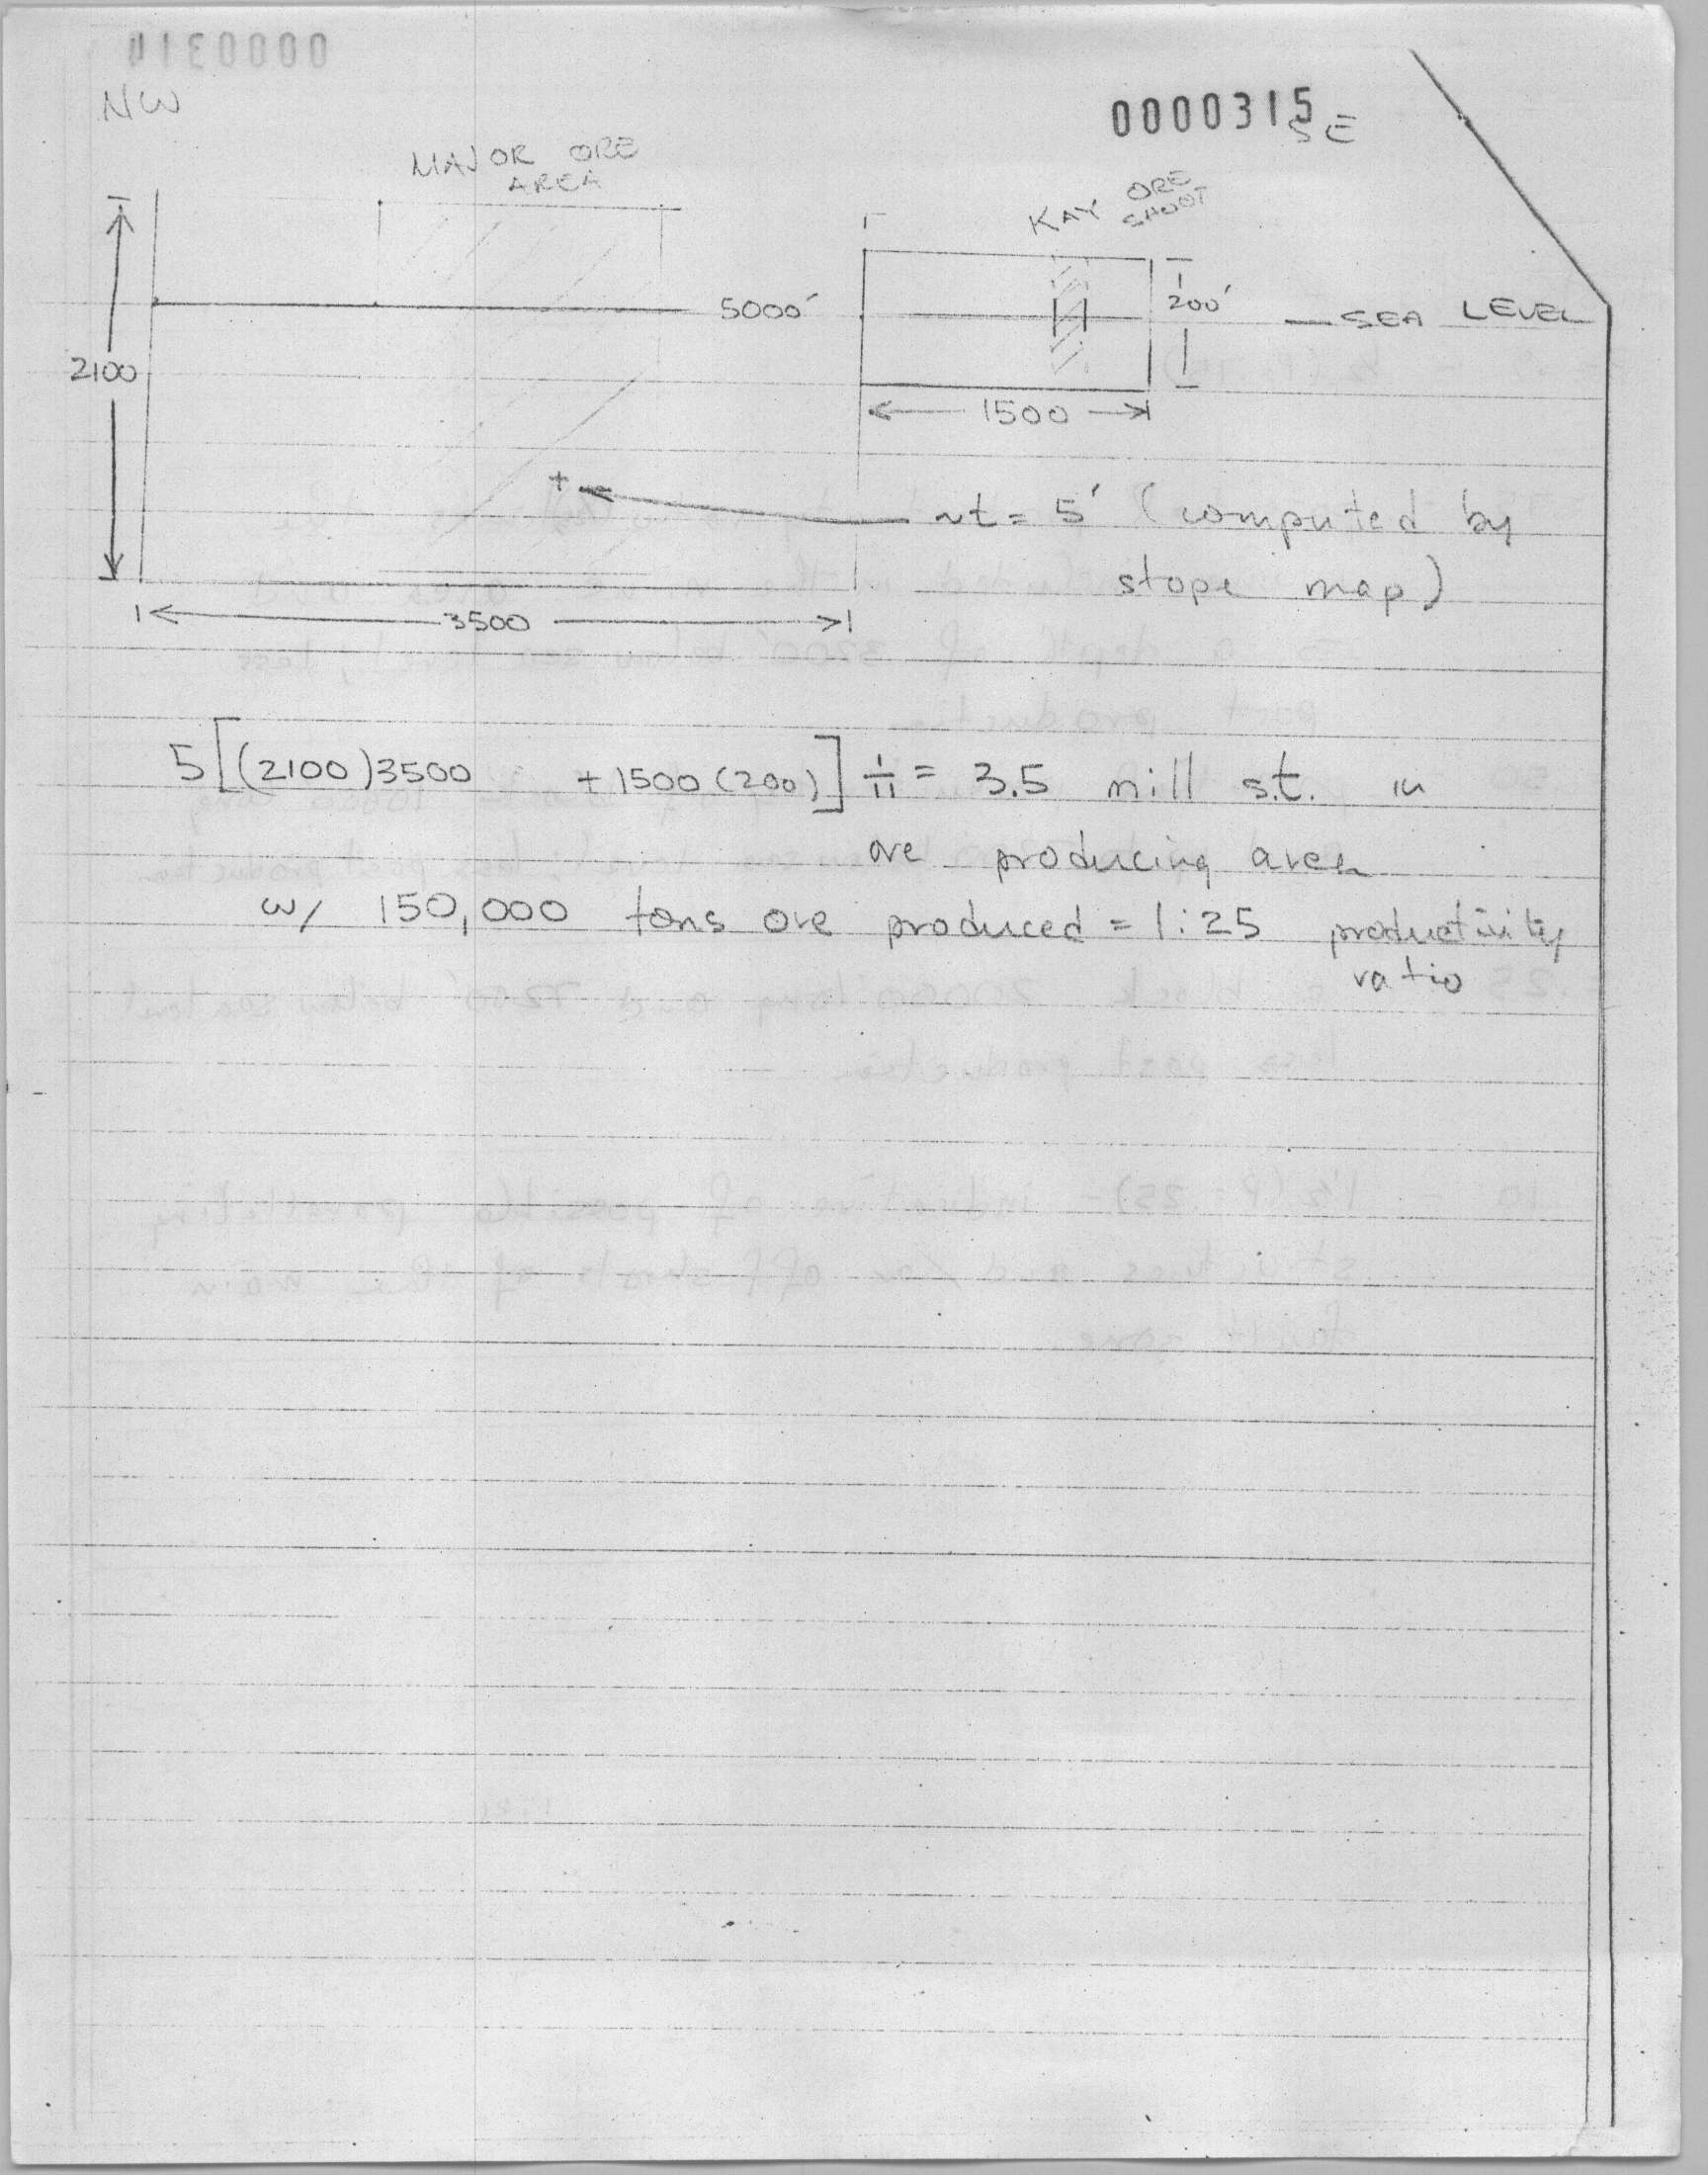 NW
0000315
SE
MAJOR ORE
AREA
KAY ORE
SHOOT
5000'
200'
SEA LEVEL
2100
1500
~t = 5' (computed by
stope map)
3500
5[(2100)3500 + 1500(200)] 1/11 = 3.5 mill s.t. in
ore producing area
w/ 150,000 tons ore produced = 1:25 productivity
ratio